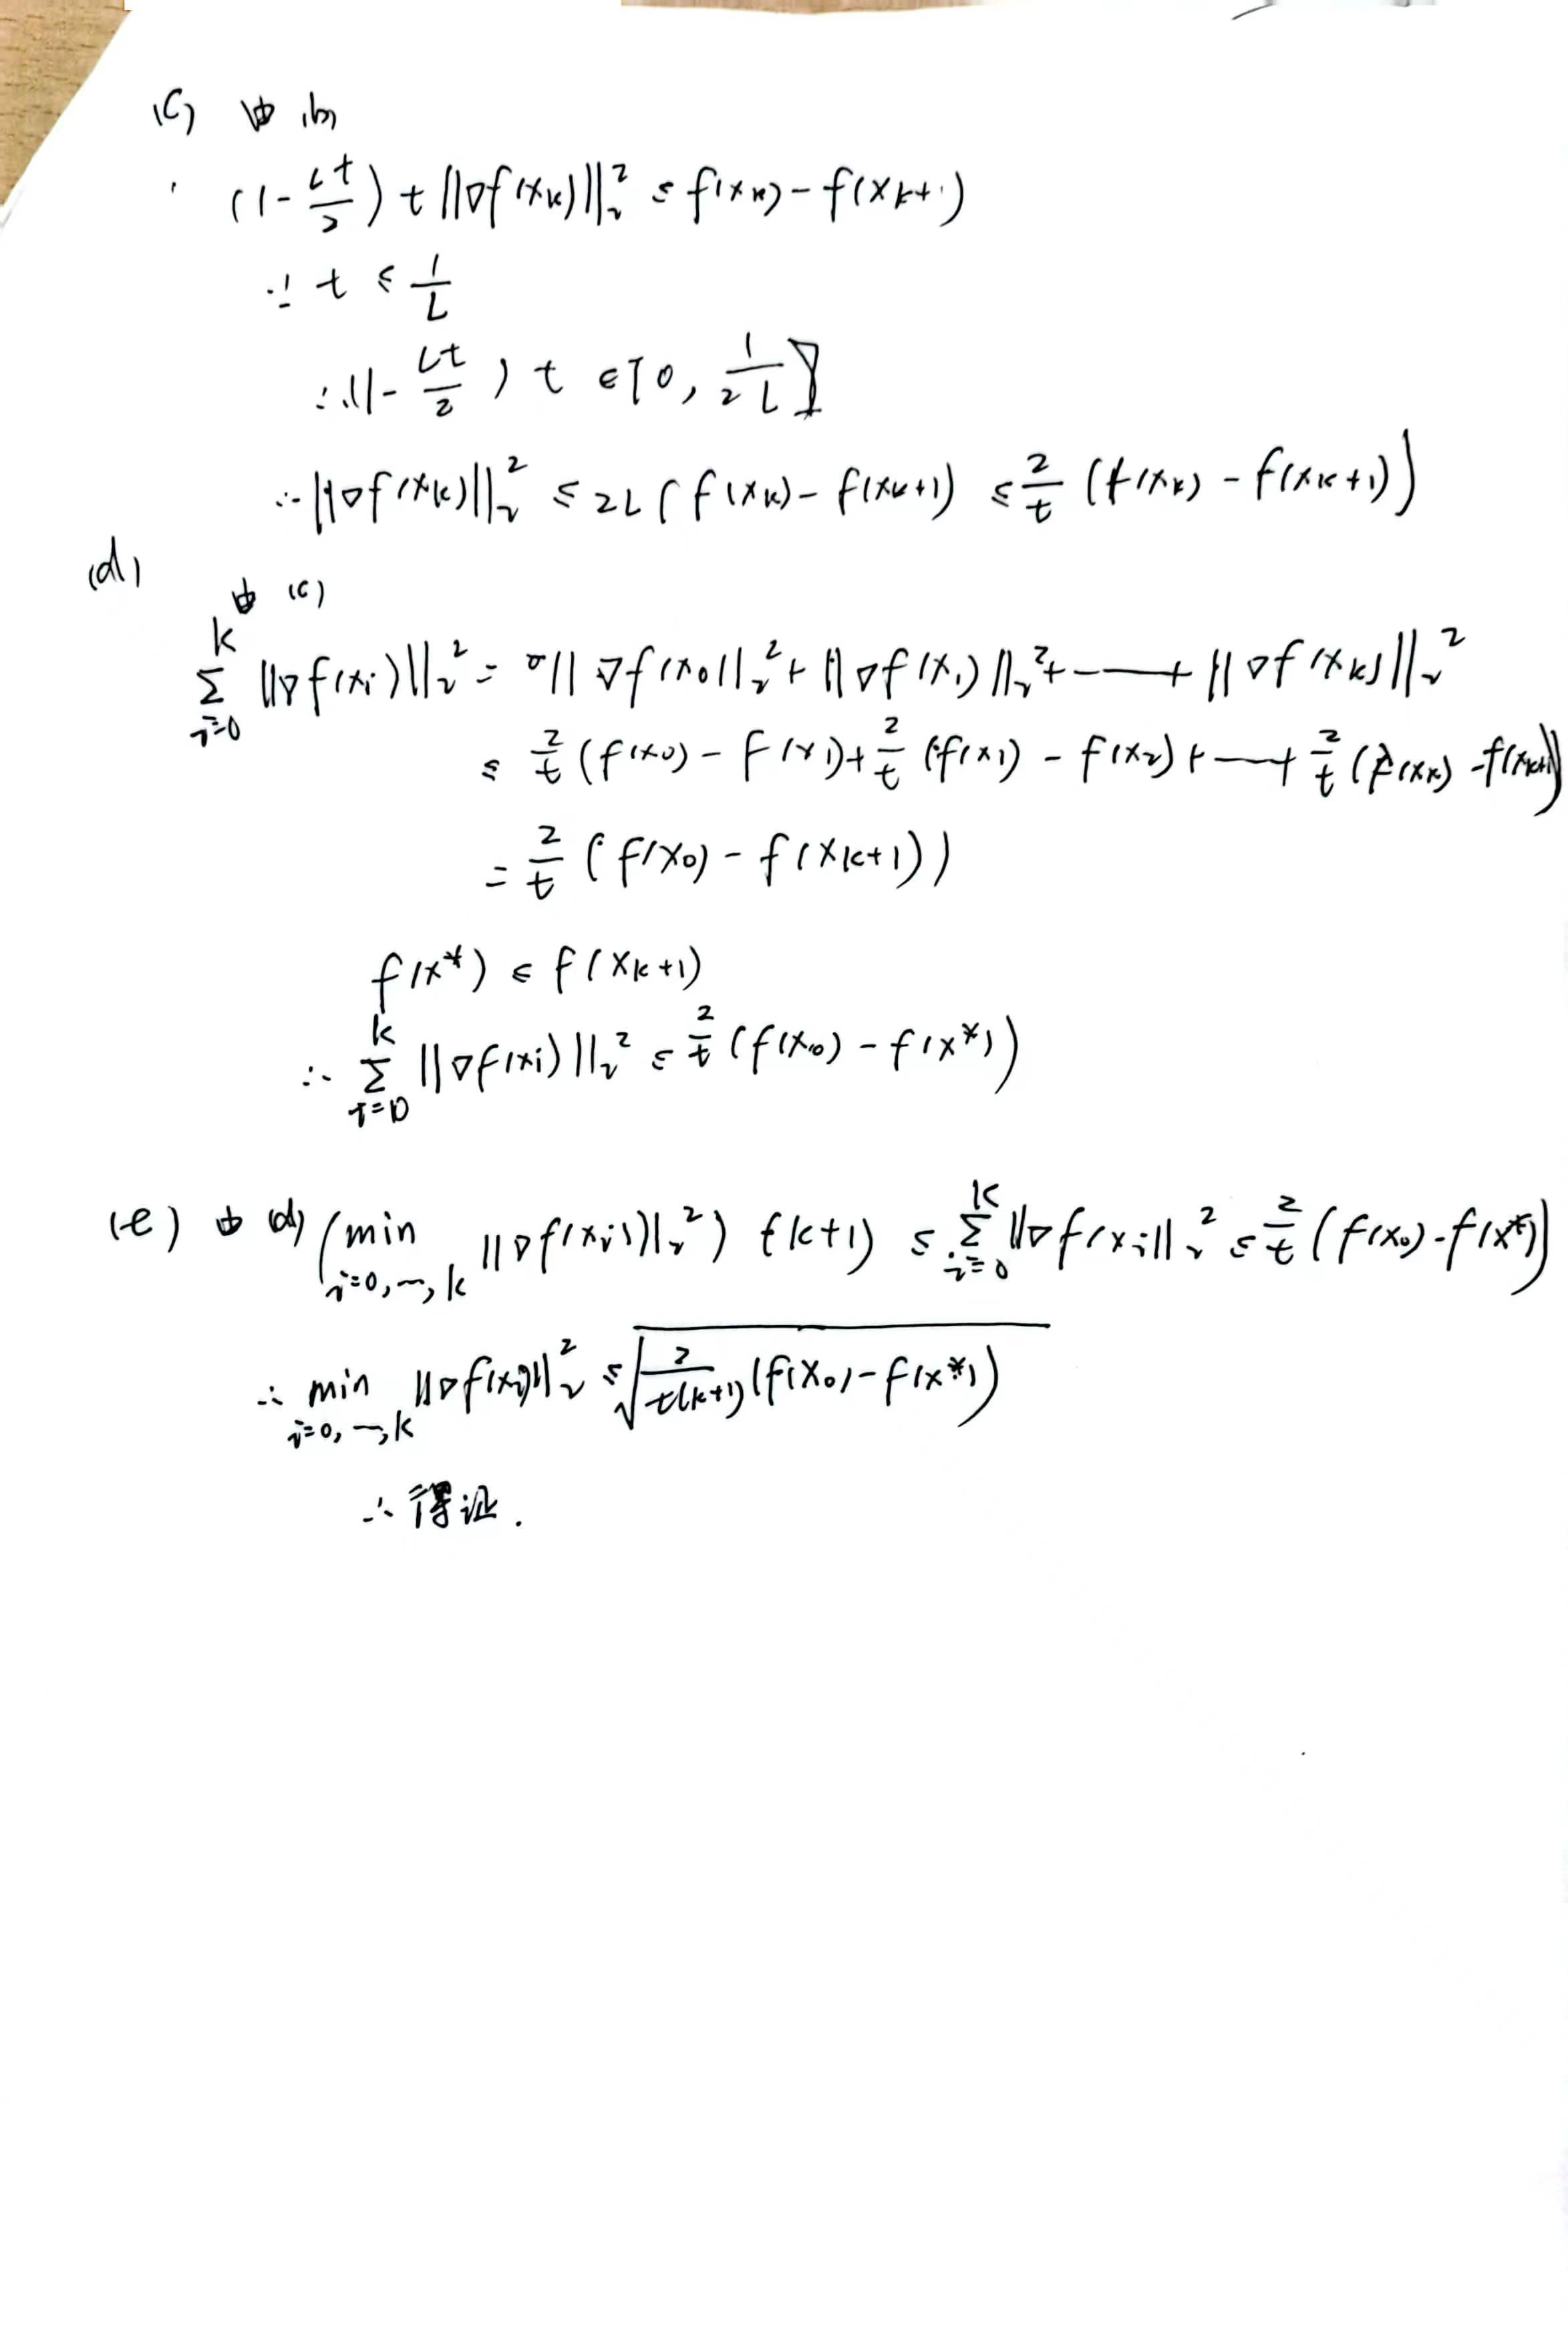 (c) 由 (b)
(1-Lt/2) t ||∇f(x_k)||₂² ≤ f(x_k) - f(x_{k+1})
∵ t ≤ 1/L
∴ (1-Lt/2) t ∈ [0, 1/2L]
∴ ||∇f(x_k)||₂² ≤ 2L (f(x_k) - f(x_{k+1}) ≤ 2/t (f(x_k) - f(x_{k+1}))
(d)
由 (c)
∑_{i=0}^{k} ||∇f(x_i)||₂² = ||∇f(x_0)||₂² + ||∇f(x_1)||₂² + —— + ||∇f(x_k)||₂²
≤ 2/t (f(x_0) - f(x_1) + 2/t (f(x_1) - f(x_2) + —— + 2/t (f(x_k) - f(x_{k+1}))
= 2/t (f(x_0) - f(x_{k+1}))
f(x*) ≤ f(x_{k+1})
∴ ∑_{i=0}^{k} ||∇f(x_i)||₂² ≤ 2/t (f(x_0) - f(x*))
(e) 由 (d) (min_{i=0,~,k} ||∇f(x_i)||₂²) (k+1) ≤ ∑_{i=0}^{k} ||∇f(x_i)||₂² ≤ 2/t (f(x_0) - f(x*))
∴ min_{i=0,~,k} ||∇f(x_i)||₂² ≤ √(2/t(k+1) (f(x_0) - f(x*))
∴ 得证.